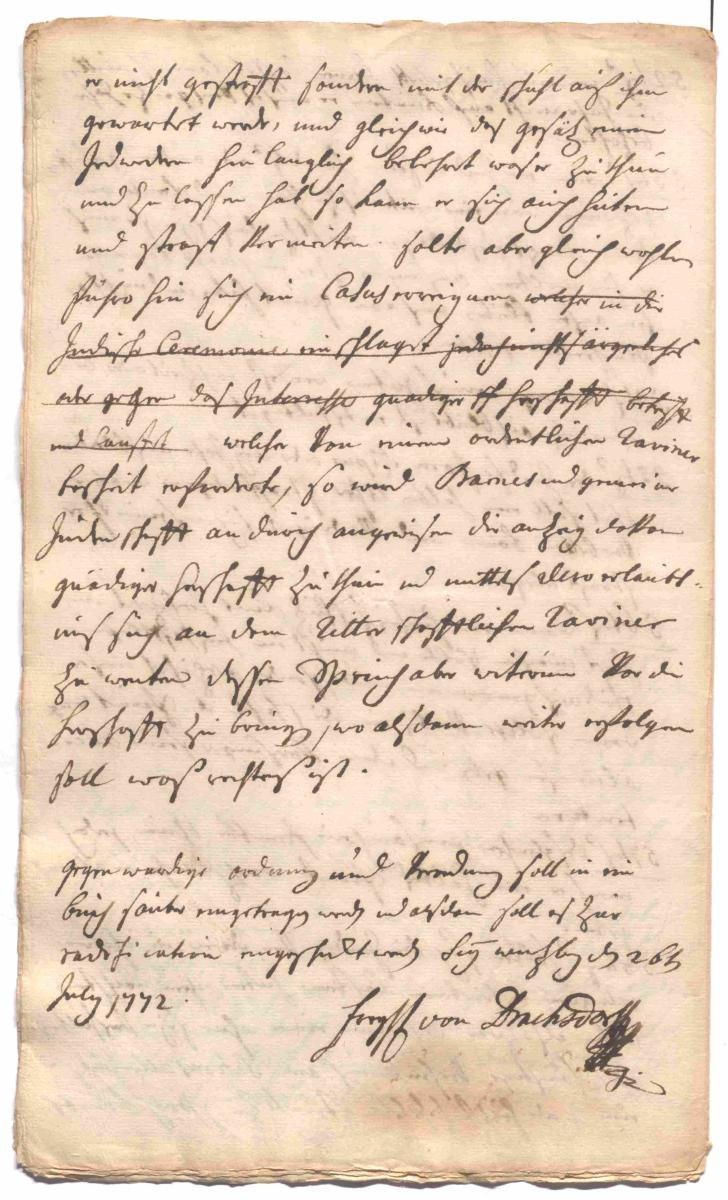 er nicht gestrafft sondern mit der schuld auf ihm
gewartet werde, und gleich wie das gesätz einen
Jedweden hinlänglich belehret waß er zu thun
und zu lassen hat so kann er sich auch hüten
und straf vermeiten. solte aber gleich wohlen
führo hin sich ein Casus erreignen welcher in die
Judische Ceremonie einschlaget jedoch nichts ärgerliches
oder gegen das Interesse gnädiger Herrschafft betrifft
und lauffet welcher von einem ordentlichen Raviner
bescheit erforderte, so wird Barnes und gemeine
Judenschafft an durch angewisen die anzeig davon
gnädiger Herrschafft zu thun und mittels dero erlaub-
nis sich an dem Ritterschafftlichen Raviner
zu wenten dessen Spruch aber witerum vor die
Herrschafft zu bringen, wo alsdann weiter erfolgen
soll waß rechtens ist.
gegenwärdige ordnung und soll in ein
buch sauber eingetragen werden und alsdan soll es zur
radification eingeschickt werden Sig den 26t
July 1772.
von Drachsdorff